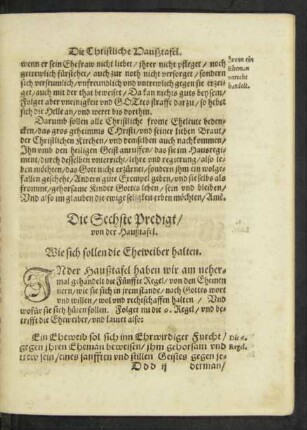 Die Christliche Haußtafel.
wenn er sein Ehefraw nicht liebet / ihrer nicht pfleget / noch
getrewlich fürstehet / auch zur noth nicht versorget / sondern
sich verstümlich / unfreundlich und untrewlich gegen sie erzei-
get / auch mit der that beweiset / Da kan nichts guts bey sein /
Folget aber uneinigkeit und GOttes straffe darzu / so hebet
sich die Hellan / und weret bis dorthin.
Darumb sollen alle Christliche frome Eheleute beden-
cken / das gros geheimnis CHristi / und seiner lieben Braut /
der Christlichen Kirchen / und denselben auch nachkommen /
Ihn umb den heiligen Geist anruffen / das sie im Hausregi-
ment / durch desselben unterricht / lehre und regierung / also le-
ben möchten / das Gott nicht erzürnet / sondern ihm ein wolge-
fallen geschehe / Andern gute Exempel geben / und sie selbs als
fromme / gehorsame Kinder Gottes leben / sein und bleiben /
Und also im glauben die ewige seligkeit erben möchten / Amē.
Die Sechste Predigt /
von der Haußtafel.
Wie sich sollen die Eheweiber halten.
INder Haußtafel haben wir am neher-
mal gehandelt die Fünffte Regel / von den Ehemen-
nern / wie sie sich in irem stande / nach Gottes wort
und willen / wol und rechtschaffen halten / Und
wofür sie sich hüten sollen. Folget nu die 6. Regel / und be-
trifft die Eheweiber / und lautet also:
Ein Eheweib sol sich inn Ehrwirdiger Furcht /
gegen ihren Eheman beweisen / ihm gehorsam und
trew sein / eines sanfften und stillen Geistes gegen je-
Die 6.
Regel.
Ddd ij
derman /